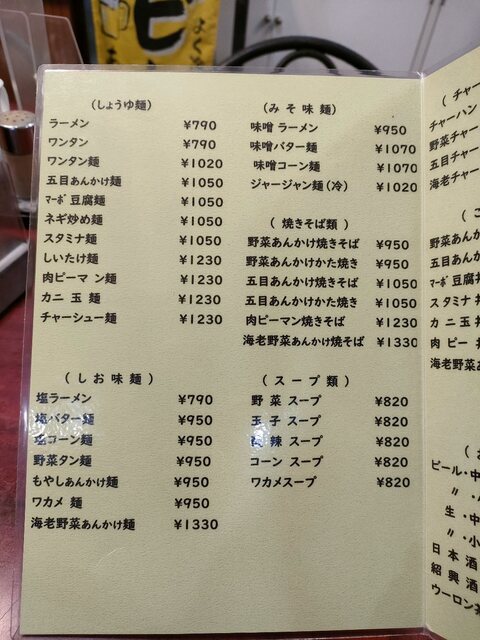 (しょうゆ麺)
ラーメン ¥790
ワンタン ¥790
ワンタン麺 ¥1020
五目あんかけ麺 ¥1050
マーボ豆腐麺 ¥1050
ネギ炒め麺 ¥1050
スタミナ麺 ¥1050
しいたけ麺 ¥1230
肉ピーマン麺 ¥1230
カニ玉麺 ¥1230
チャーシュー麺 ¥1230
(しお味麺)
塩ラーメン ¥790
塩バター麺 ¥950
塩コーン麺 ¥950
野菜タン麺 ¥950
もやしあんかけ麺 ¥950
ワカメ麺 ¥950
海老野菜あんかけ麺 ¥1330
(みそ味麺)
味噌ラーメン ¥950
味噌バター麺 ¥1070
味噌コーン麺 ¥1070
ジャージャン麺(冷) ¥1020
(焼きそば類)
野菜あんかけ焼きそば ¥950
野菜あんかけかた焼き ¥950
五目あんかけ焼きそば ¥1050
五目あんかけかた焼き ¥1050
肉ピーマン焼きそば ¥1230
海老野菜あんかけ焼そば ¥1330
(スープ類)
野菜スープ ¥820
玉子スープ ¥820
辣スープ ¥820
コーンスープ ¥820
ワカメスープ ¥820
(チャー
チャーハン
野菜チャー
五目チャー
海老チャー
(ご
野菜あんか
五目あんか
マーボ豆腐
スタミナ
カニ玉
肉ピー
海老野菜
(お
ビール・中
〃・
生・中
〃・小
日本酒
紹興酒
ウーロン